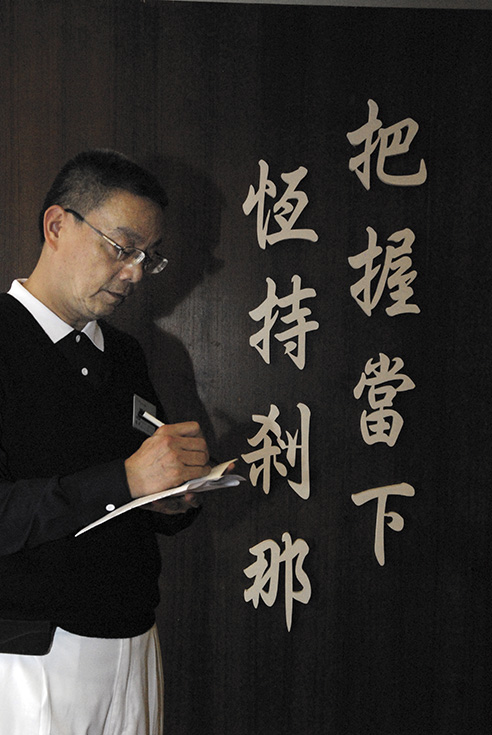 把握當下
恆持剎那